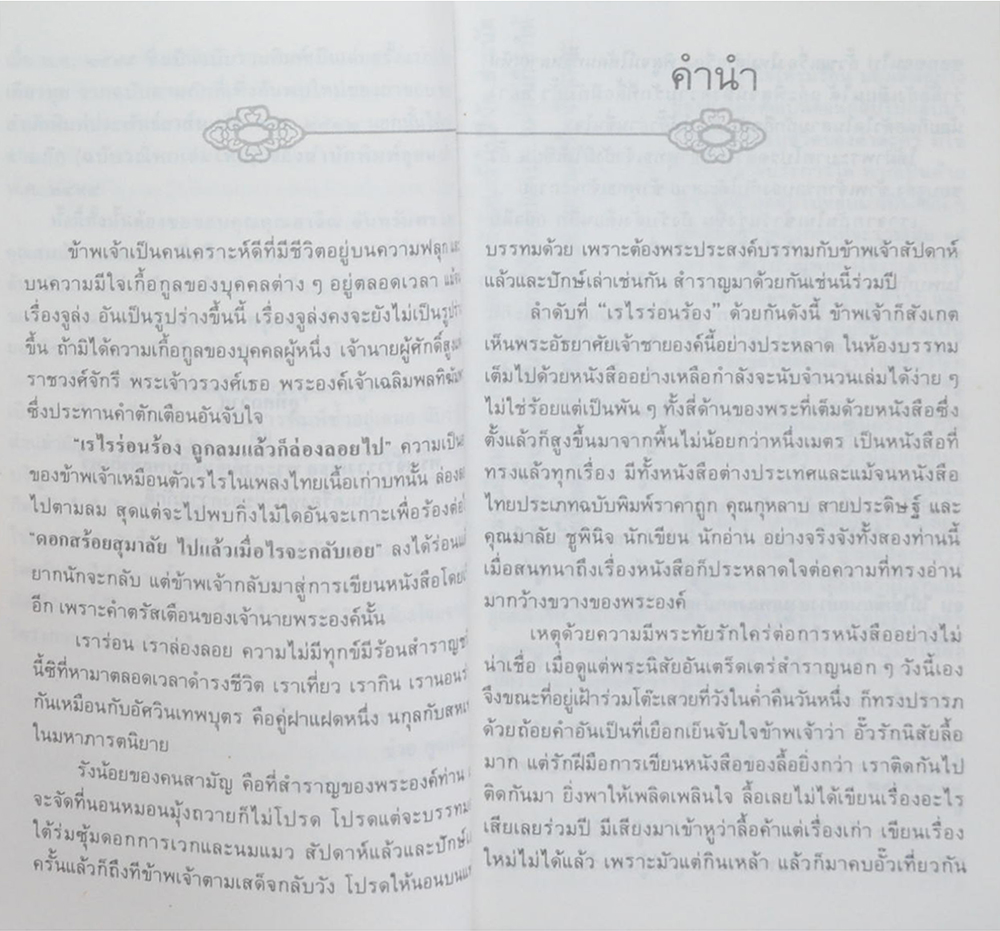 คำนำ
ข้าพเจ้าเป็นคนเคราะห์ดีที่มีชีวิตอยู่บนความฟลุก
บนความมีใจเกื้อกูลของบุคคลต่าง ๆ อยู่ตลอดเวลา
เรื่องจูล่ง อันเป็นรูปร่างขึ้นนี้ เรื่องจูล่งคงจะยังไม่เป็น
ขึ้น ถ้ามิได้ความเกื้อกูลของบุคคลผู้หนึ่ง เจ้านายผู้ศักดิ์
ราชวงศ์จักรี พระเจ้าวรวงศ์เธอ พระองค์เจ้าเฉลิมพล
ซึ่งประทานคำตักเตือนอันจับใจ
"เรไรร่อนร้อง ถูกลมแล้วก็ล่องลอยไป" ความเป็น
ของข้าพเจ้าเหมือนตัวเรไรในเพลงไทยเนื้อเก่าบทนั้น
ไปตามลม สุดแต่จะไปพบกิ่งไม้ใดอันจะเกาะเพื่อร้อง
"ดอกสร้อยสุมาลัย ไปแล้วเมื่อไรจะกลับเอย" ลงได้ร่อน
ยากนักจะกลับ แต่ข้าพเจ้ากลับมาสู่การเขียนหนังสือ
อีก เพราะคำตรัสเตือนของเจ้านายพระองค์นั้น
เราร่อน เราล่องลอย ความไม่มีทุกข์มีร้อนสำราญ
นี้ซิที่หามาตลอดเวลาดำรงชีวิต เราเที่ยว เรากิน เรานอน
กันเหมือนกับอัศวินเทพบุตร คือคู่ฝาแฝดหนึ่ง นกุลกับ
ในมหาภารตนิยาย
รังน้อยของคนสามัญ คือที่สำราญของพระองค์ท่าน
จะจัดที่นอนหมอนมุ้งถวายก็ไม่โปรด โปรดแต่จะบรรทม
ใต้ร่มซุ้มดอกการเวกและนมแมว สัปดาห์แล้วและปักษ์
ครั้นแล้วก็ถึงทีข้าพเจ้าตามเสด็จกลับวัง โปรดให้นอนบน
บรรทมด้วย เพราะต้องพระประสงค์บรรทมกับข้าพเจ้าสัปดาห์
แล้วและปักษ์เล่าเช่นกัน สำราญมาด้วยกันเช่นนี้ร่วมปี
ลำดับที่ "เรไรร่อนร้อง" ด้วยกันดังนี้ ข้าพเจ้าก็สังเกต
เห็นพระอัธยาศัยเจ้าชายองค์นี้อย่างประหลาด ในห้องบรรทม
เต็มไปด้วยหนังสืออย่างเหลือกำลังจะนับจำนวนเล่มได้ง่าย ๆ
ไม่ใช่ร้อยแต่เป็นพัน ๆ ทั้งสี่ด้านของพระที่เต็มด้วยหนังสือซึ่ง
ตั้งแล้วก็สูงขึ้นมาจากพื้นไม่น้อยกว่าหนึ่งเมตร เป็นหนังสือที่
ทรงแล้วทุกเรื่อง มีทั้งหนังสือต่างประเทศและแม้จนหนังสือ
ไทยประเภทฉบับพิมพ์ราคาถูก คุณกุหลาบ สายประดิษฐ์ และ
คุณมาลัย ชูพินิจ นักเขียน นักอ่าน อย่างจริงจังทั้งสองท่านนี้
เมื่อสนทนาถึงเรื่องหนังสือก็ประหลาดใจต่อความที่ทรงอ่าน
มากว้างขวางของพระองค์
เหตุด้วยความมีพระทัยรักใคร่ต่อการหนังสืออย่างไม่
น่าเชื่อ เมื่อดูแต่พระนิสัยอันเตร็ดเตร่สำราญนอก ๆ วังนี้เอง
จึงขณะที่อยู่เฝ้าร่วมโต๊ะเสวยที่วังในค่ำคืนวันหนึ่ง ก็ทรงปรารภ
ด้วยถ้อยคำอันเป็นที่เยือกเย็นจับใจข้าพเจ้าว่า อั๊วรักนิสัยลื้อ
มาก แต่รักฝีมือการเขียนหนังสือของลื้อยิ่งกว่า เราติดกันไป
ติดกันมา ยิ่งพาให้เพลิดเพลินใจ ลื้อเลยไม่ได้เขียนเรื่องอะไร
เสียเลยร่วมปี มีเสียงมาเข้าหูว่าลื้อค้าแต่เรื่องเก่า เขียนเรื่อง
ใหม่ไม่ได้แล้ว เพราะมัวแต่กินเหล้า แล้วก็มาคบอั๊วเที่ยวกัน